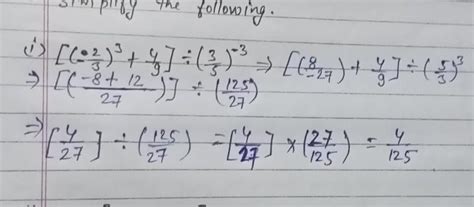 simplify the following.
i) [(-2/3)³ + 4/9] ÷ (3/5)⁻³ ⇒ [(8/-27) + 4/9] ÷ (5/3)³
⇒ [(-8 + 12/27)] ÷ (125/27)
⇒ [4/27] ÷ (125/27) = [4/27] × (27/125) = 4/125